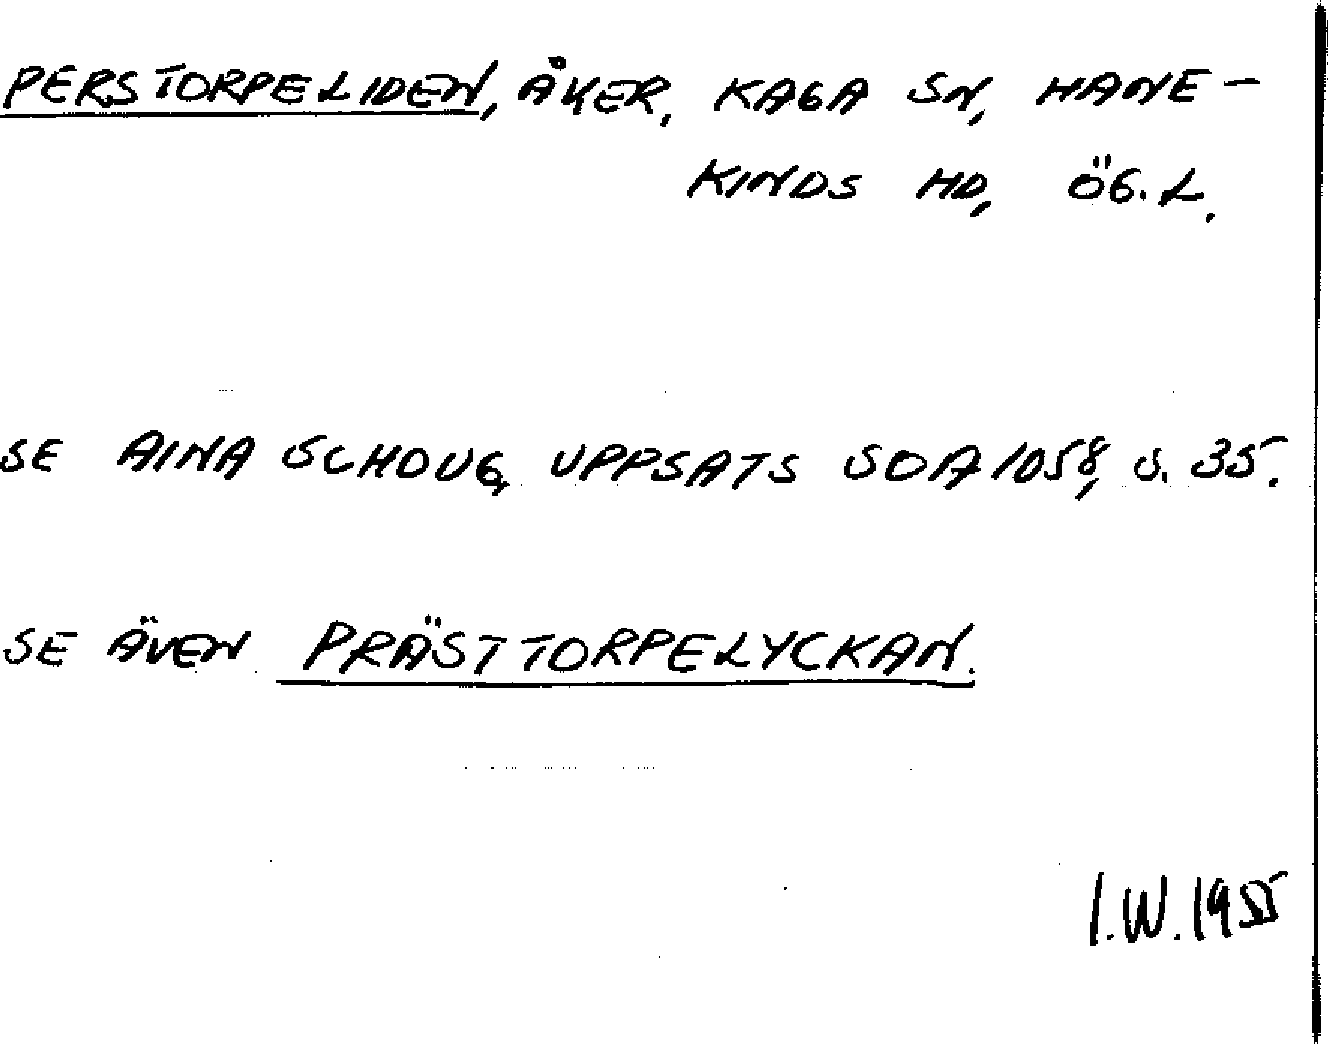 PERSTORPELIDEN, ÅKER, KAGA SN, HANE-
KINDS HD, ÖG. L.
SE AINA SCHOUG, UPPSATS SOA 1058, S. 35.
SE ÄVEN PRÄSTTORPELYCKAN.
I.W. 1955